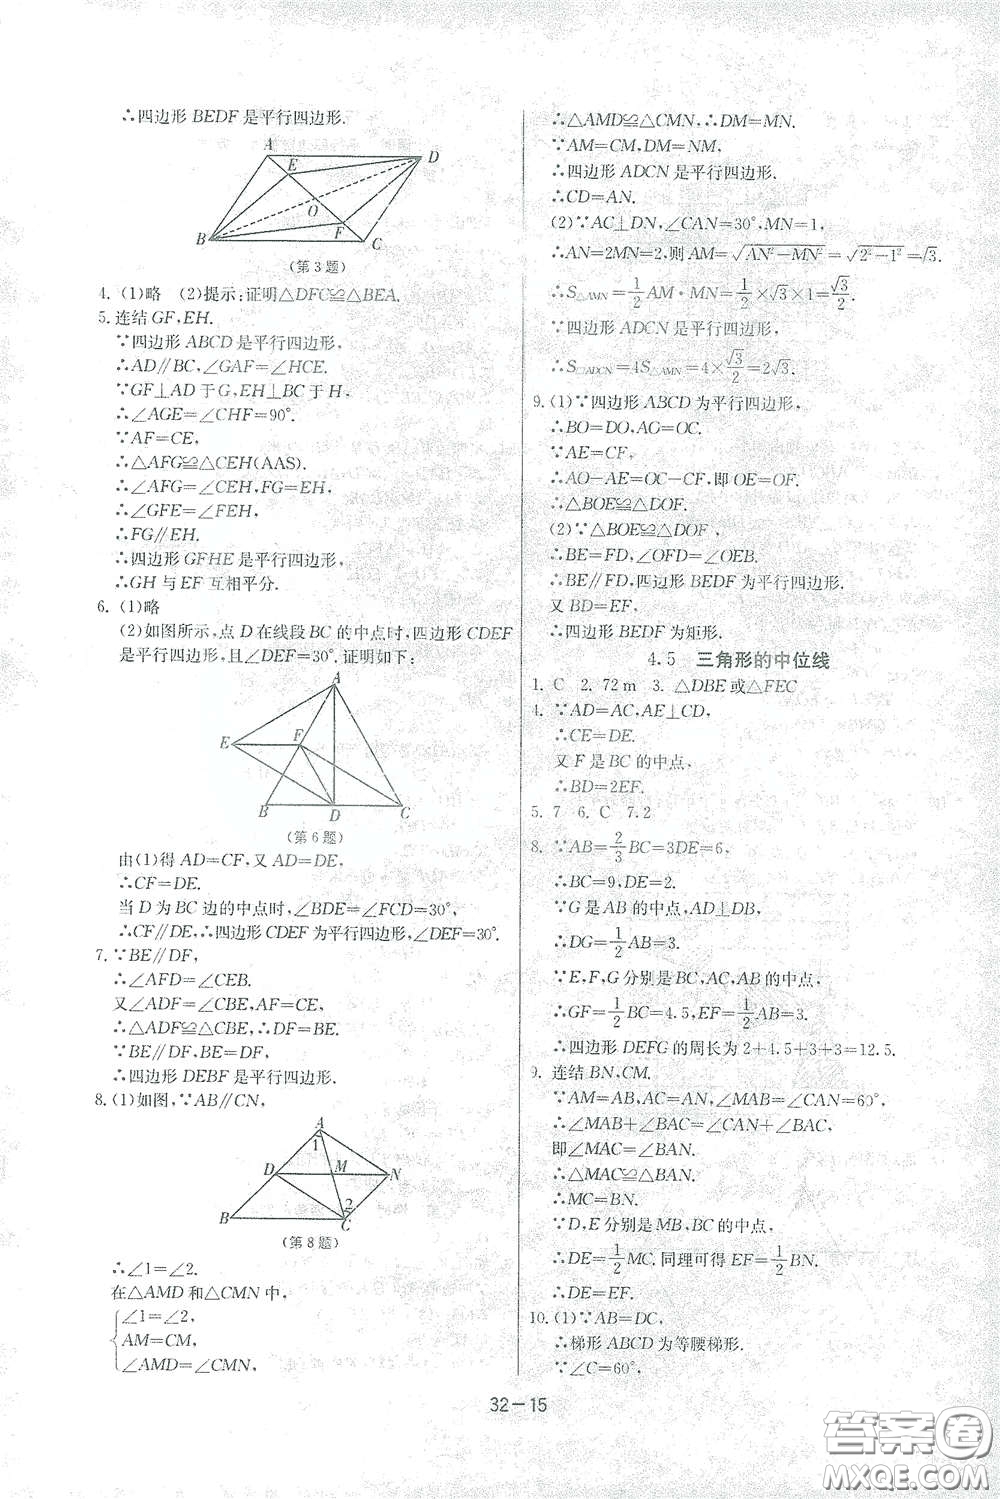 ∴四边形BEDF是平行四边形.
A
E
D
O
F
B
C
(第3题)
4. (1)略 (2)提示:证明△DFC≌△BEA.
5. 连结GF,EH.
∵四边形ABCD是平行四边形,
∴AD∥BC,∠GAF=∠HCE.
∵GF⊥AD于G,EH⊥BC于H,
∴∠AGE=∠CHF=90°.
∵AF=CE,
∴△AFG≌△CEH(AAS).
∴∠AFG=∠CEH,FG=EH,
∴∠GFE=∠FEH,
∴FG∥EH.
∴四边形GFHE是平行四边形,
∴GH与EF互相平分.
6. (1)略
(2)如图所示,点D在线段BC的中点时,四边形CDEF
是平行四边形,且∠DEF=30°.证明如下:
A
E
F
B
D
C
(第6题)
由(1)得AD=CF,又AD=DE,
∴CF=DE.
当D为BC边的中点时,∠BDE=∠FCD=30°,
∴CF∥DE,∴四边形CDEF为平行四边形,∠DEF=30°.
7. ∵BE∥DF,
∴∠AFD=∠CEB.
又∠ADF=∠CBE,AF=CE,
∴△ADF≌△CBE,∴DF=BE.
∵BE∥DF,BE=DF,
∴四边形DEBF是平行四边形.
8. (1)如图,∵AB∥CN,
A
1
D
M
N
2
B
C
(第8题)
∴∠1=∠2.
在△AMD和△CMN中,
∠1=∠2,
AM=CM,
∠AMD=∠CMN,
∴△AMD≌△CMN,∴DM=MN.
∵AM=CM,DM=NM,
∴四边形ADCN是平行四边形.
∴CD=AN.
(2)∵AC⊥DN,∠CAN=30°,MN=1,
∴AN=2MN=2,则AM=√(AN²−MN²)=√(2²−1²)=√3.
∴S△AMN=1/2 AM·MN=1/2×√3×1=√3/2.
∵四边形ADCN是平行四边形,
∴S□ADCN=4S△AMN=4×√3/2=2√3.
9. (1)∵四边形ABCD为平行四边形,
∴BO=DO,AO=OC.
∵AE=CF,
∴AO−AE=OC−CF,即OE=OF.
∴△BOE≌△DOF.
(2)∵△BOE≌△DOF,
∴BE=FD,∠OFD=∠OEB.
∴BE∥FD,四边形BEDF为平行四边形.
又BD=EF,
∴四边形BEDF为矩形.
4.5 三角形的中位线
1. C 2. 72 m 3. △DBE或△FEC
4. ∵AD=AC,AE⊥CD,
∴CE=DE.
又F是BC的中点,
∴BD=2EF.
5. 7 6. C 7. 2
8. ∵AB=2/3 BC=3DE=6,
∴BC=9,DE=2.
∵G是AB的中点,AD⊥DB,
∴DG=1/2 AB=3.
∵E,F,G分别是BC,AC,AB的中点,
∴GF=1/2 BC=4.5,EF=1/2 AB=3.
∴四边形DEFG的周长为2+4.5+3+3=12.5.
9. 连结BN,CM.
∵AM=AB,AC=AN,∠MAB=∠CAN=60°,
∴∠MAB+∠BAC=∠CAN+∠BAC,
即∠MAC=∠BAN.
∴△MAC≌△BAN.
∴MC=BN.
∵D,E分别是MB,BC的中点,
∴DE=1/2 MC.同理可得EF=1/2 BN,
∴DE=EF.
10. (1)∵AB=DC,
∴梯形ABCD为等腰梯形.
∵∠C=60°,
32−15
答案圈
MXQE.COM